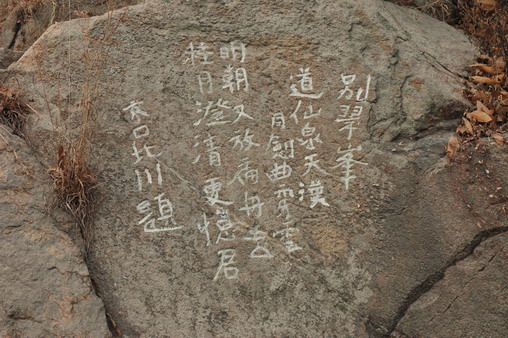 别翠峯
道仙泉天漢
月剑曲穿雲
明朝又放扁舟去
桂月澄清更憶君
北川題